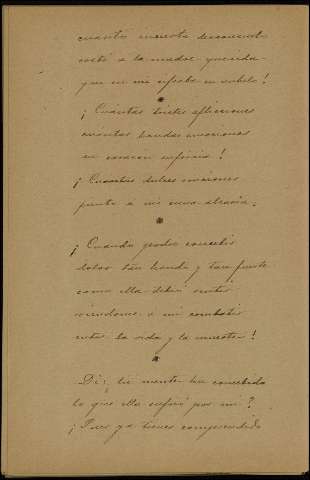 cuanto
costó á la madre querida
que en mí cifraba su anhelo!
¡Cuántas tristes aflicciones
cuántas hondas emociones
su corazón sufriría!
¡Cuántas dulces
junto á mi cuna
¡Cuando puedas concebir
dolor tan hondo y tan fuerte
como ella debió sentir
viéndome á mí combatir
entre la vida y la muerte!
Di: tu mente ha concebido
lo que ella sufrió por mí?
¡Pues ya tienes comprendido